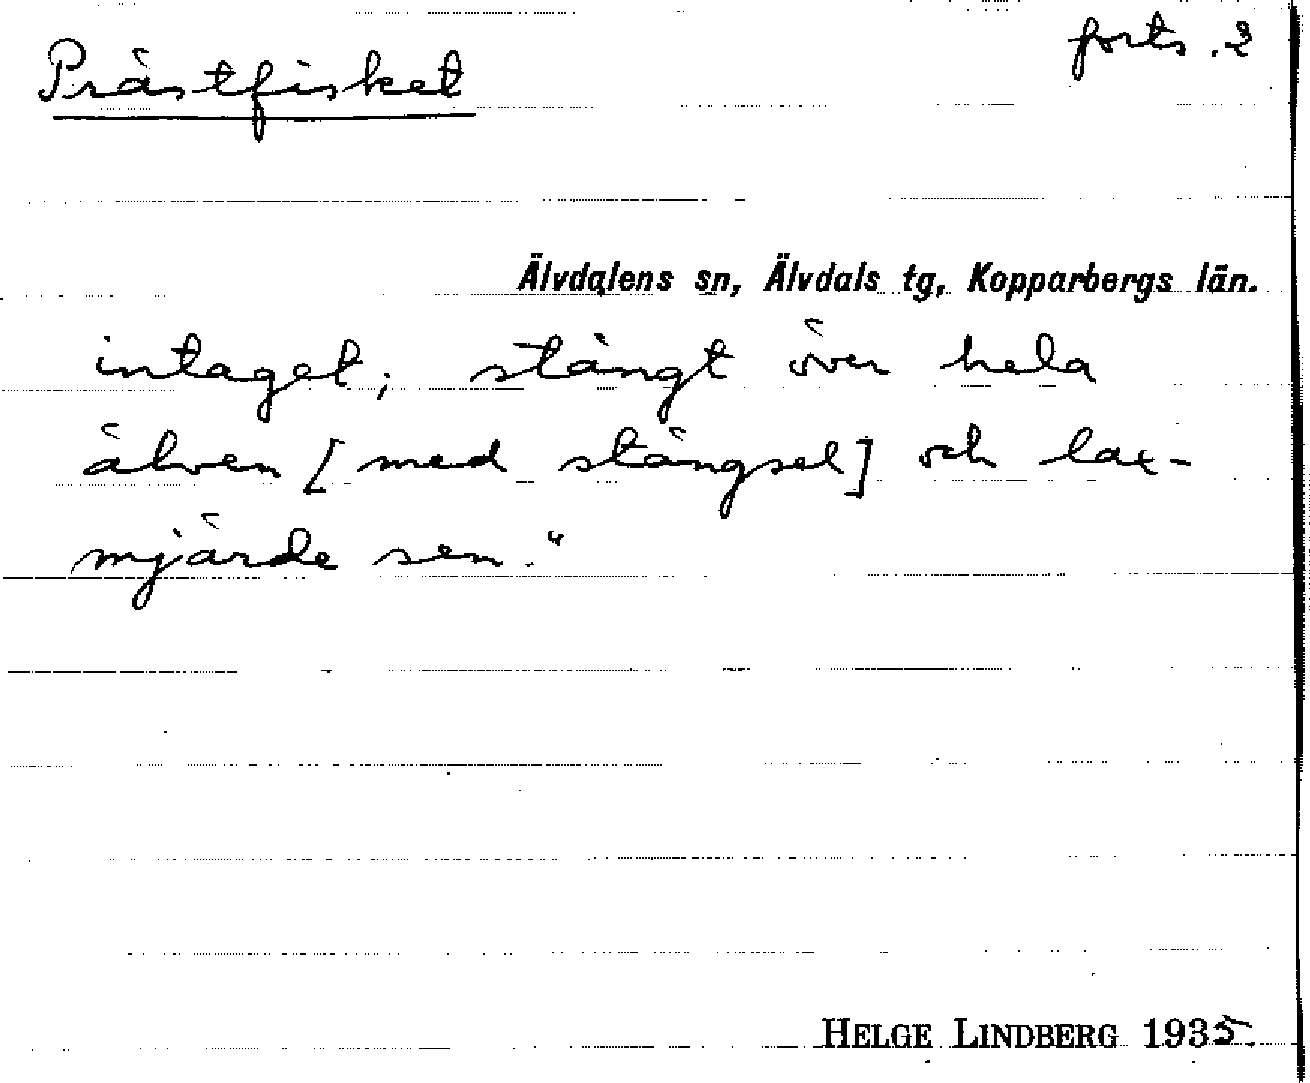 Prästfisket
forts. 2
Älvdalens sn, Älvdals tg, Kopparbergs län.
intaget; stängt över hela
älven [med stängsel] och lax-
mjärde sen."
HELGE LINDBERG 1935.